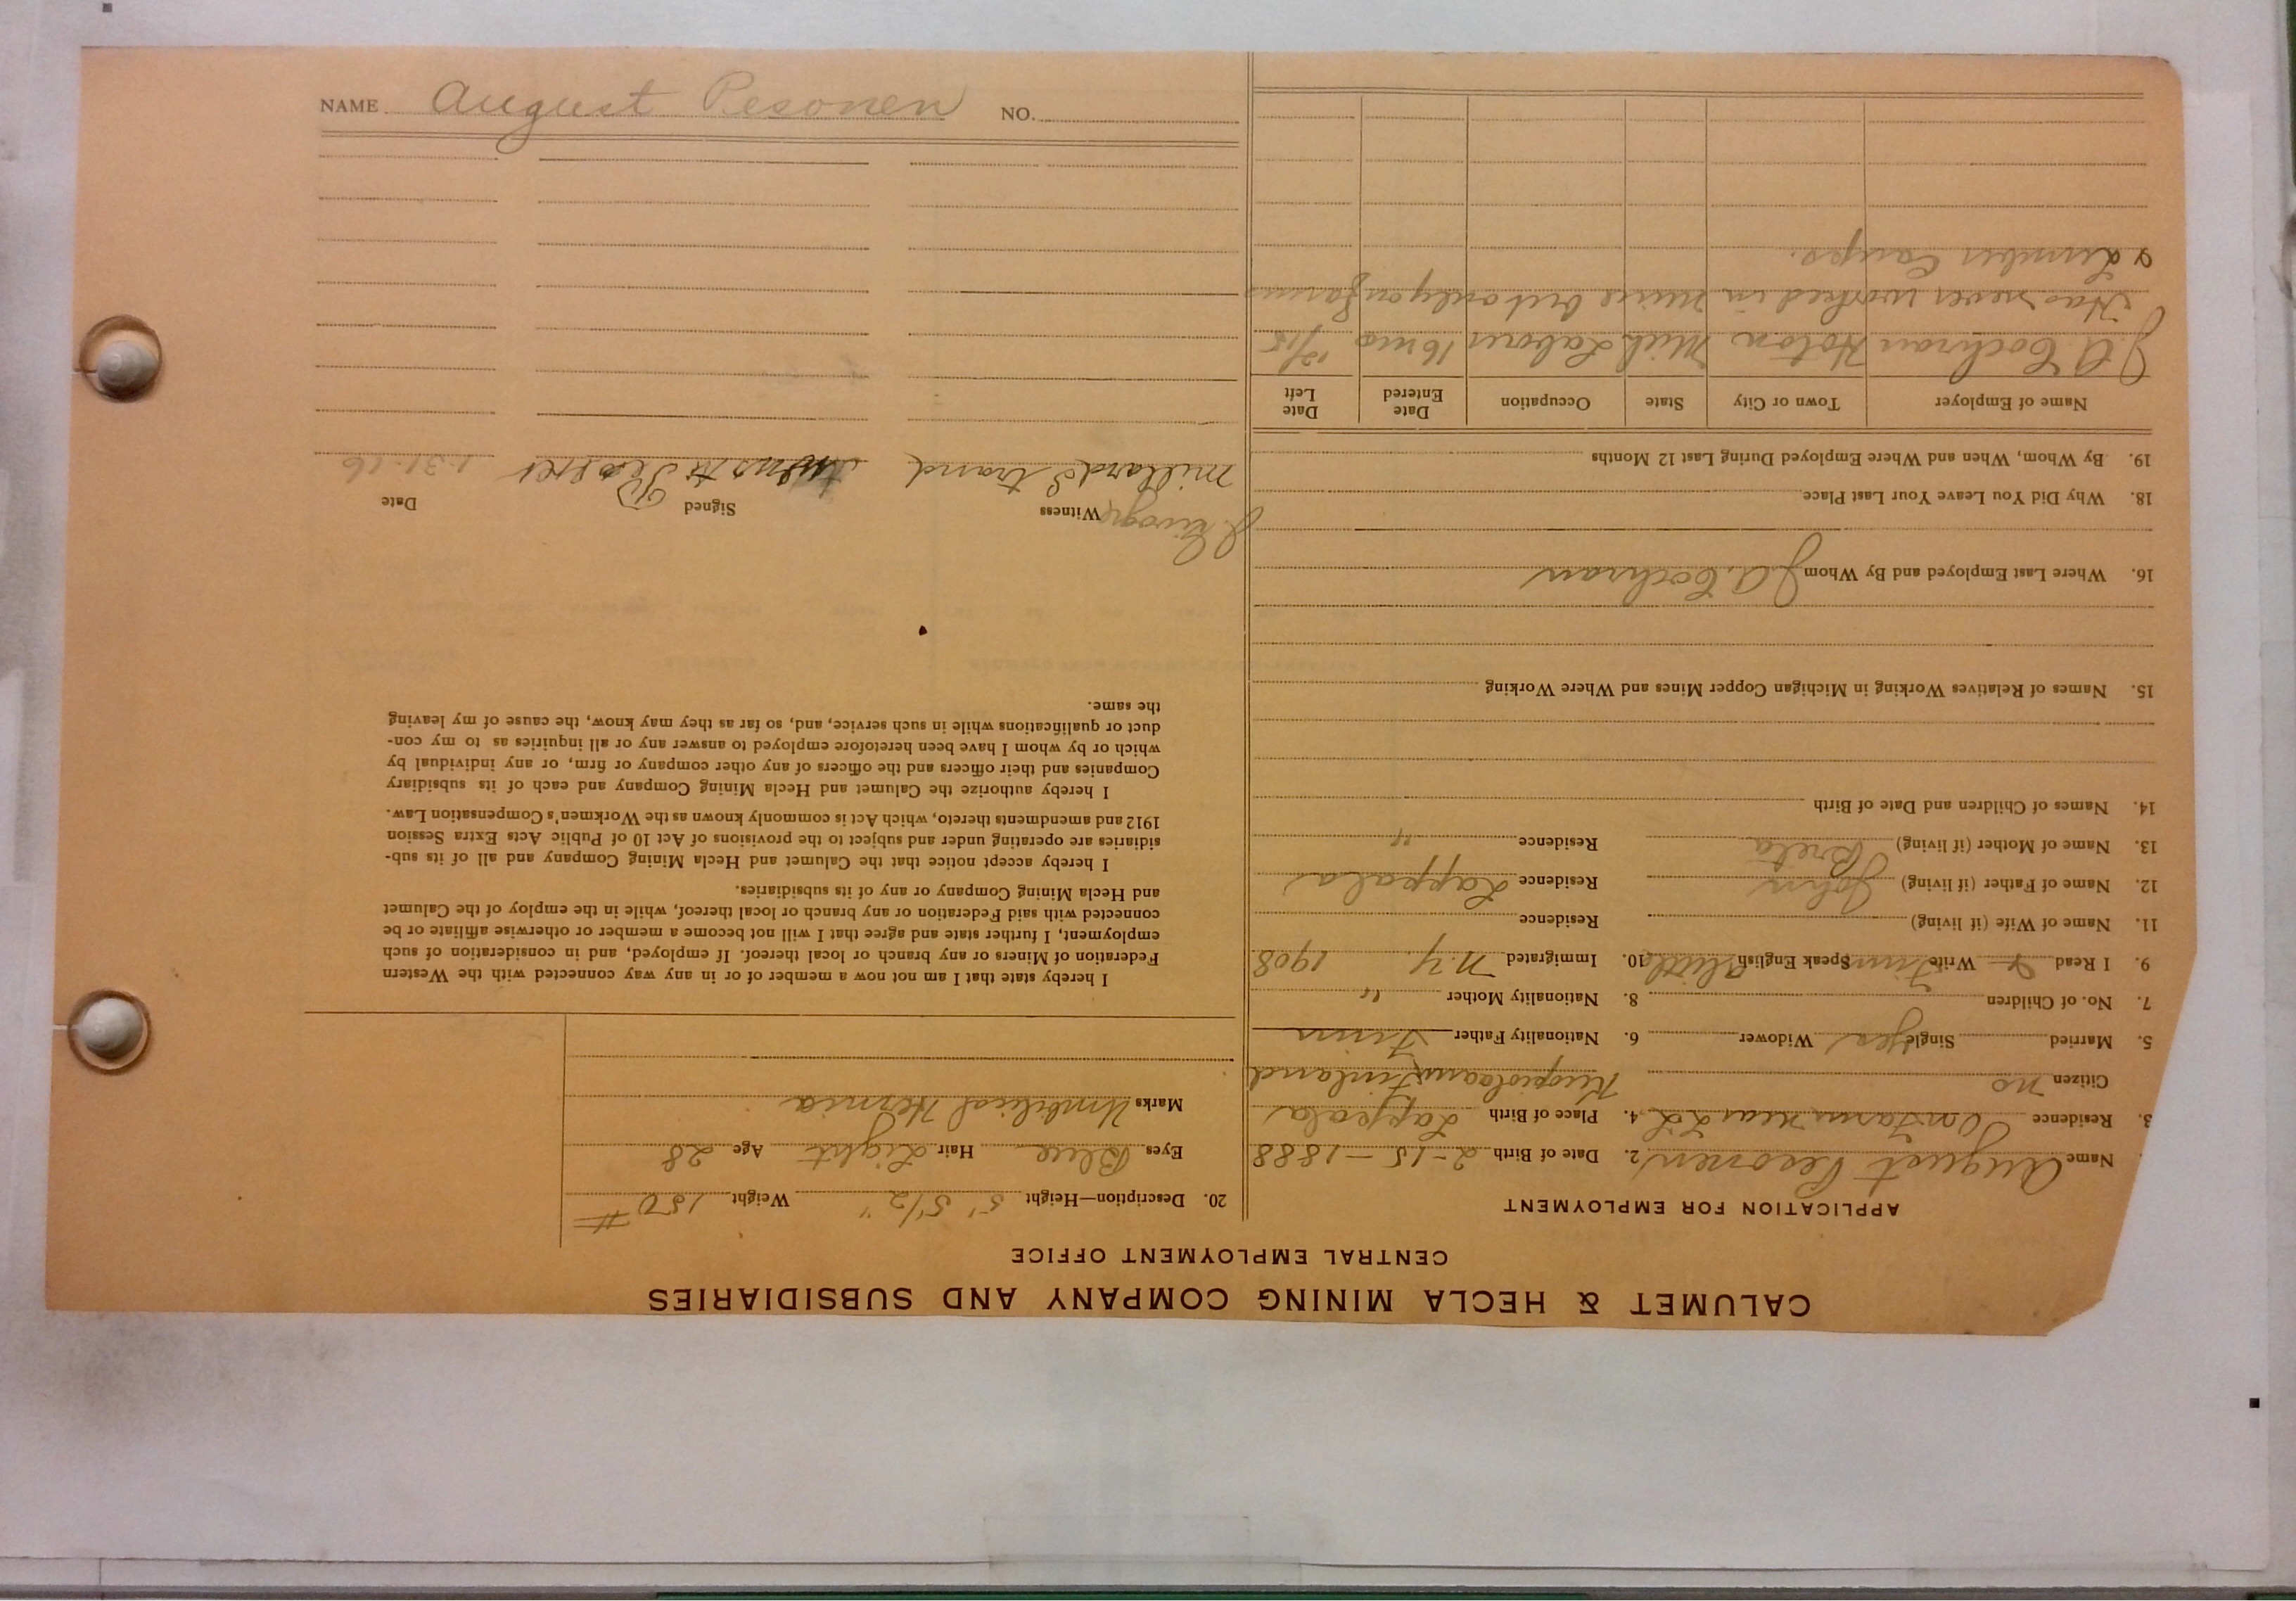 CALUMET & HECLA MINING COMPANY AND SUBSIDIARIES
CENTRAL EMPLOYMENT OFFICE
APPLICATION FOR EMPLOYMENT
Name August Pesonen 2. Date of Birth 2-15-1888
3. Residence On Farm near L.L. 4. Place of Birth Lappola
Citizen no Kuopiolaani Finland
5. Married Single yes Widower 6. Nationality Father Finn
7. No. of Children 8. Nationality Mother "
9. I Read & Write Finn Speak English little 10. Immigrated N.Y. 1908
11. Name of Wife (if living) Residence
12. Name of Father (if living) John Residence Lappala
13. Name of Mother (if living) Breta Residence "
14. Names of Children and Date of Birth
15. Names of Relatives Working in Michigan Copper Mines and Where Working
16. Where Last Employed and By Whom J.A. Cochran
18. Why Did You Leave Your Last Place
19. By Whom, When and Where Employed During Last 12 Months
Name of Employer Town or City State Occupation Date Entered Date Left
J.A. Cochran Hoton Mich Laborer 16 mo 12/15
Has never worked in mine but only on farms
& Lumber Camps.
20. Description—Height 5' 5 1/2" Weight 150 #
Eyes Blue Hair Light Age 28
Marks Umbilical Hernia
I hereby state that I am not now a member of or in any way connected with the Western
Federation of Miners or any branch or local thereof. If employed, and in consideration of such
employment, I further state and agree that I will not become a member or otherwise affiliate or be
connected with said Federation or any branch or local thereof, while in the employ of the Calumet
and Hecla Mining Company or any of its subsidiaries.
I hereby accept notice that the Calumet and Hecla Mining Company and all of its sub-
sidiaries are operating under and subject to the provisions of Act 10 of Public Acts Extra Session
1912 and amendments thereto, which Act is commonly known as the Workmen's Compensation Law.
I hereby authorize the Calumet and Hecla Mining Company and each of its subsidiary
Companies and their officers and the officers of any other company or firm, or any individual by
which or by whom I have been heretofore employed to answer any or all inquiries as to my con-
duct or qualifications while in such service, and, so far as they may know, the cause of my leaving
the same.
Witness Signed Date
Millard Strand 1-31-16
NAME August Pesonen NO.